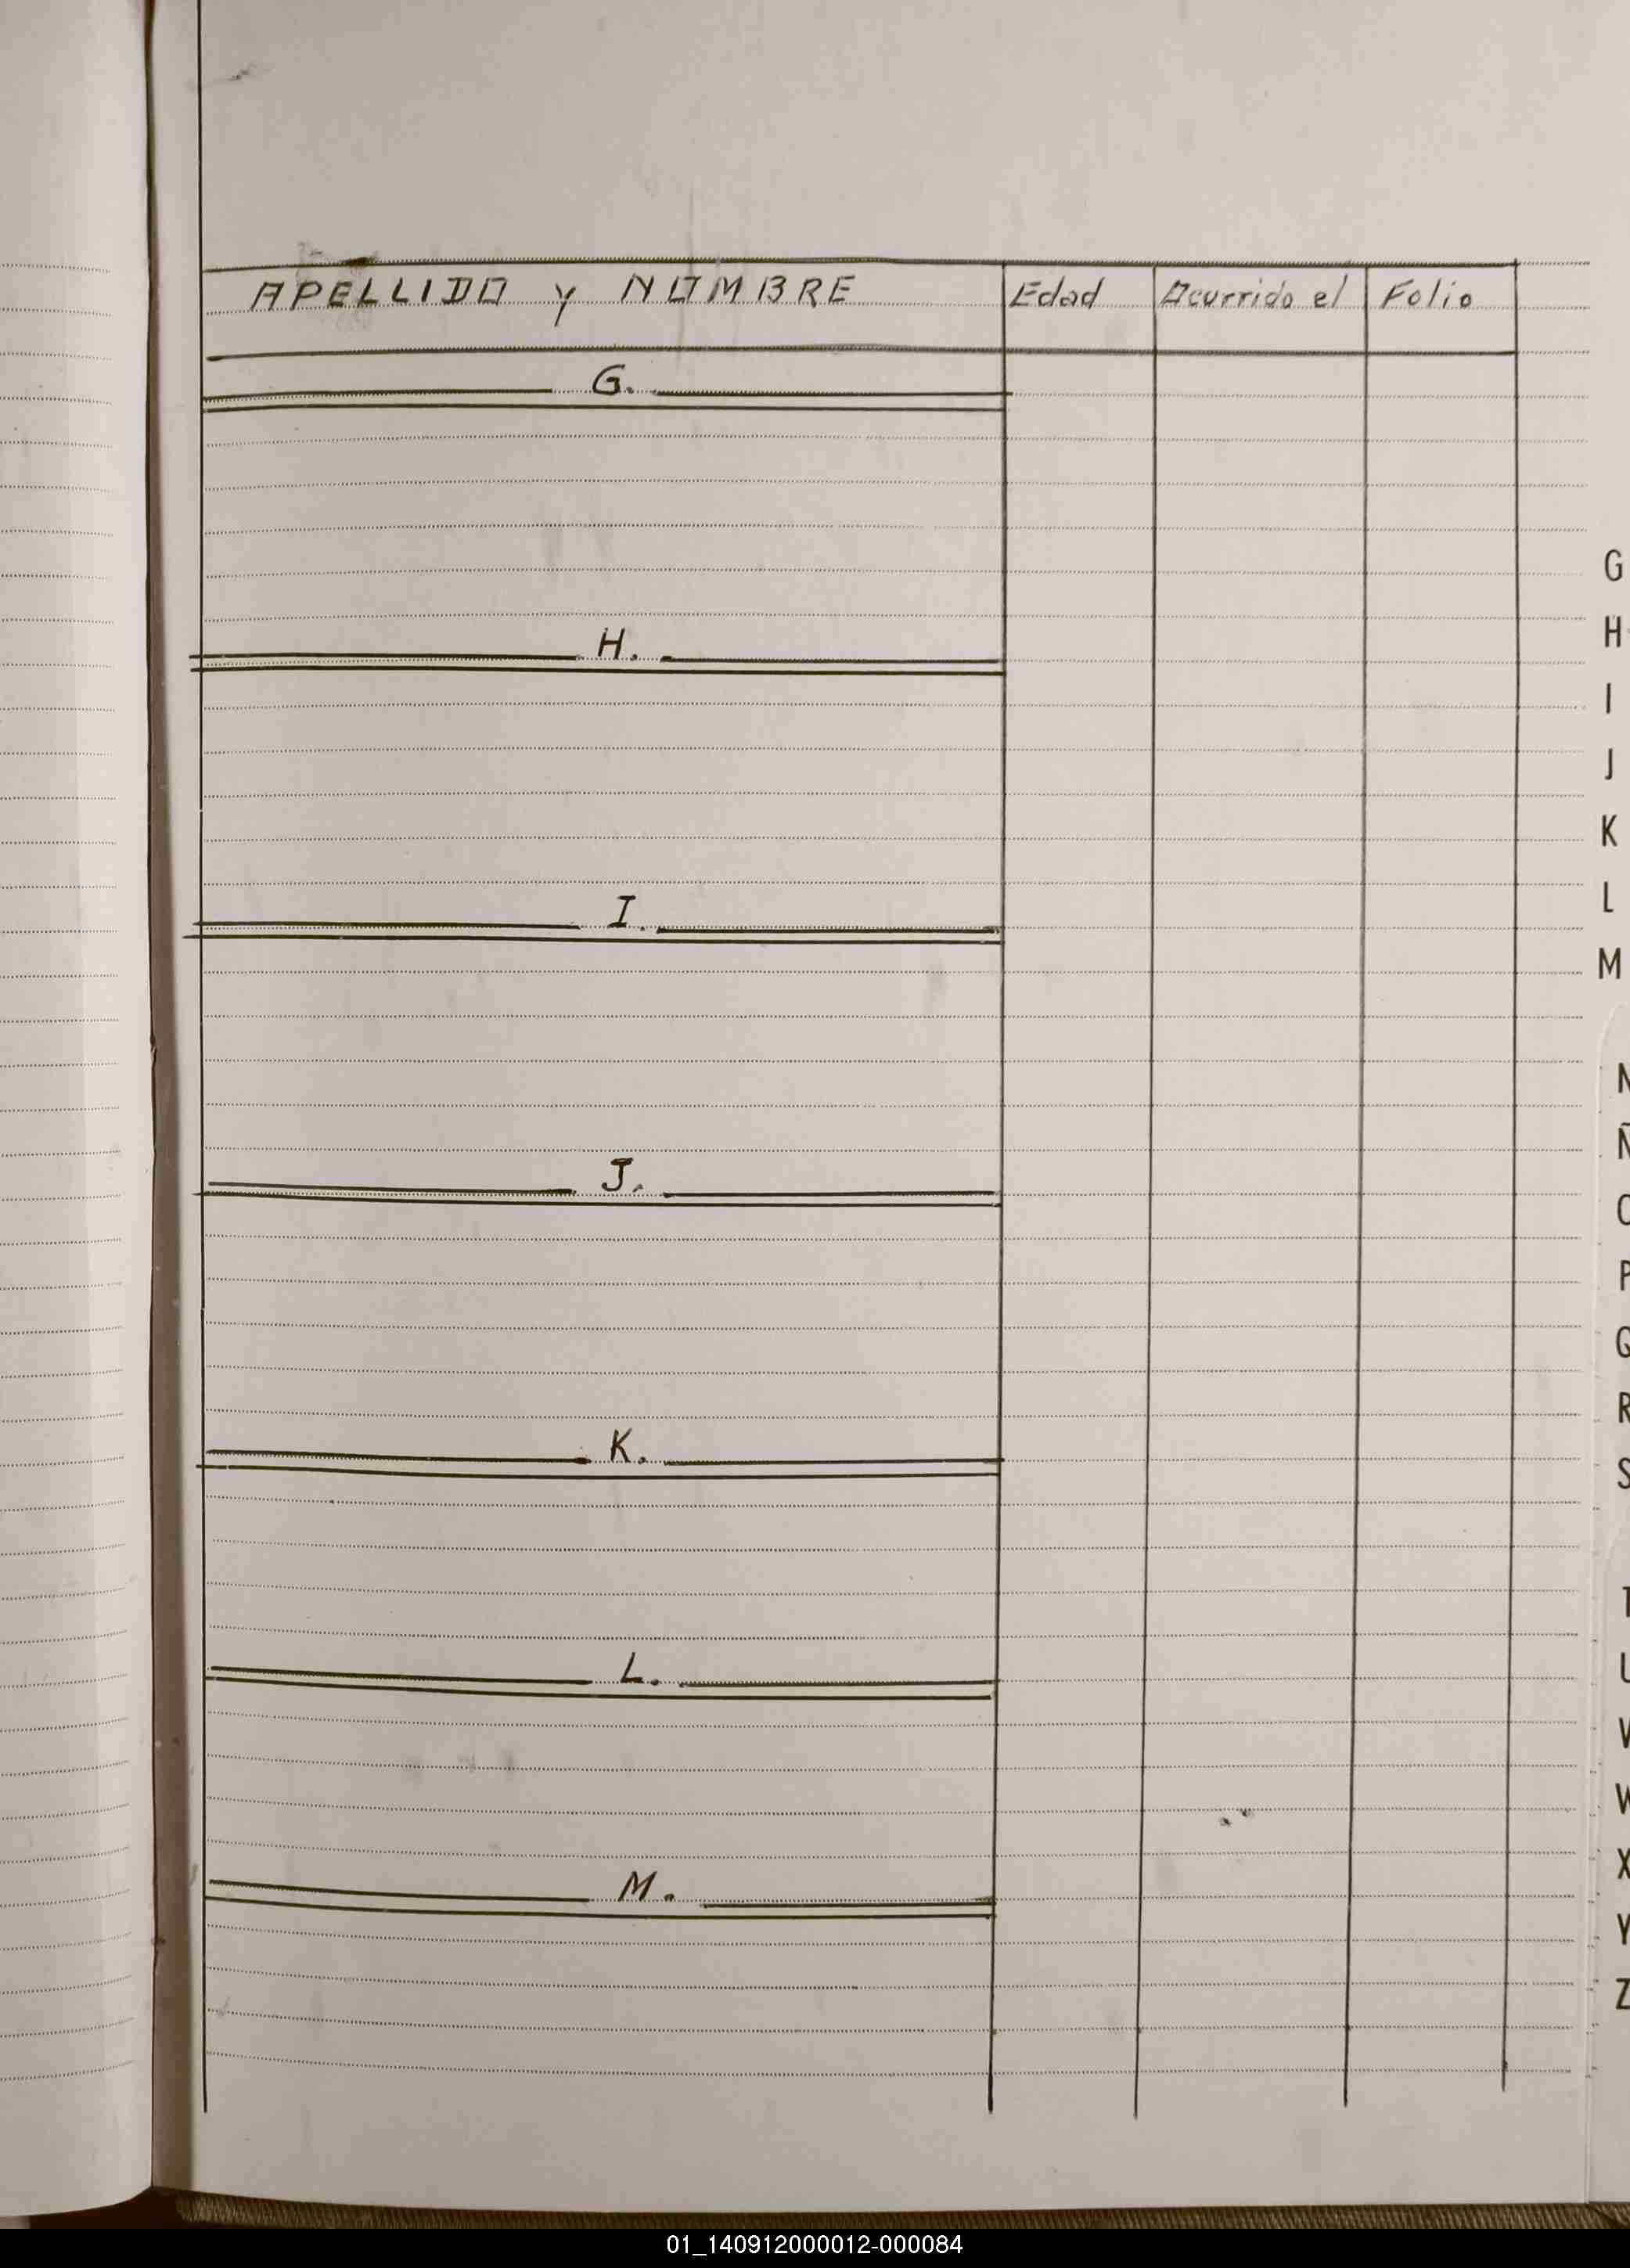 APELLIDO y NOMBRE Edad Ocurrido el Folio
G.
H.
I.
J.
K.
L.
M.
G
H
I
J
K
L
M
N
Ñ
O
P
Q
R
S
T
U
V
W
X
Y
Z
01_140912000012-000084